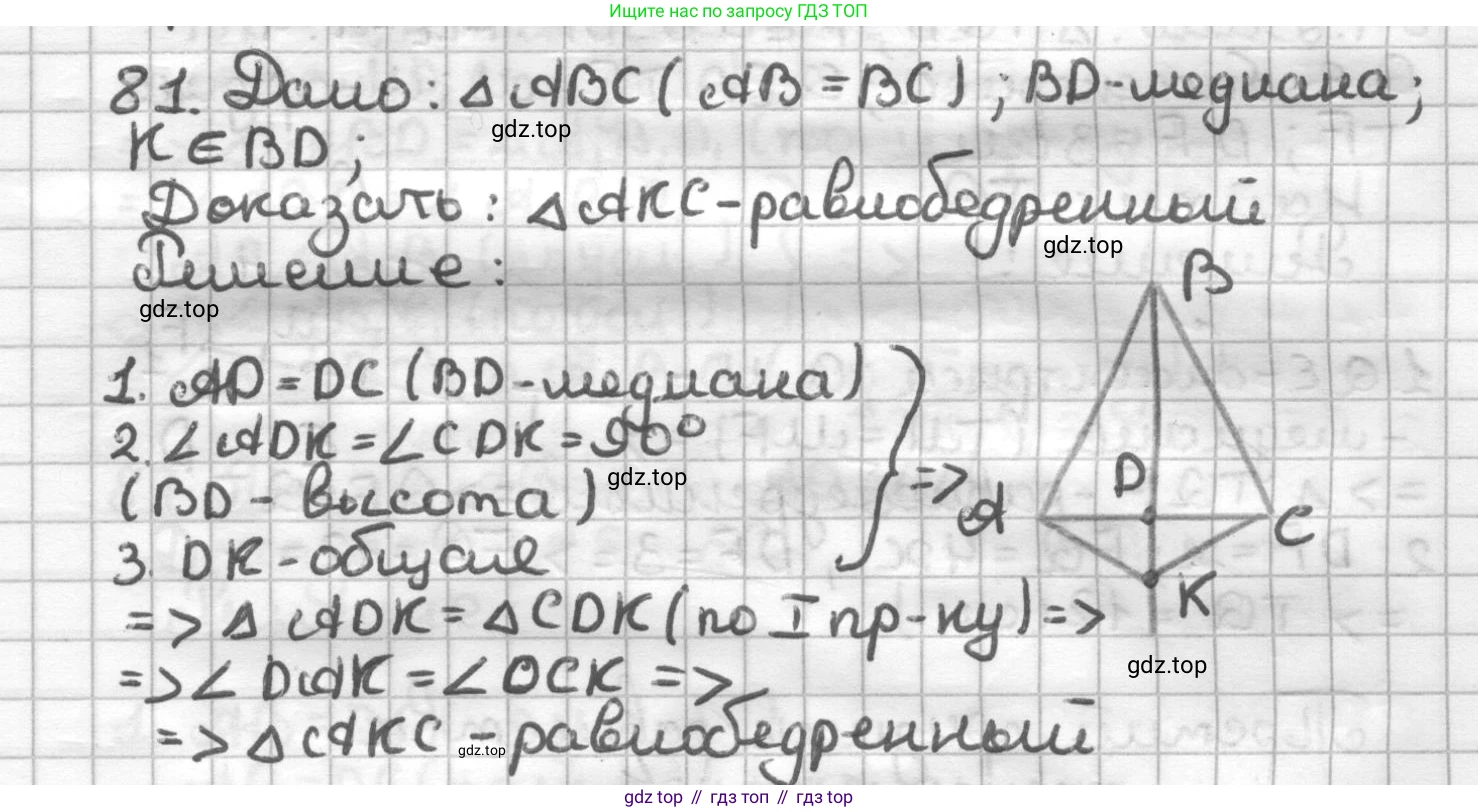 Ищите нас по запросу ГДЗ ТОП
81. Дано: △ABC (AB = BC); BD-медиана;
gdz.top
K ∈ BD;
Доказать: △AKC - равнобедренный
gdz.top
Решение:
gdz.top
B
1. AD = DC (BD - медиана)
2. ∠ADK = ∠CDK = 90°
gdz.top
(BD - высота)
=>
D
A
C
3. DK - общая
K
=> △ADK = △CDK (по I пр-ку) =>
gdz.top
=> ∠DAK = ∠DCK =>
=> △AKC - равнобедренный
gdz.top
gdz top // гдз топ // gdz top